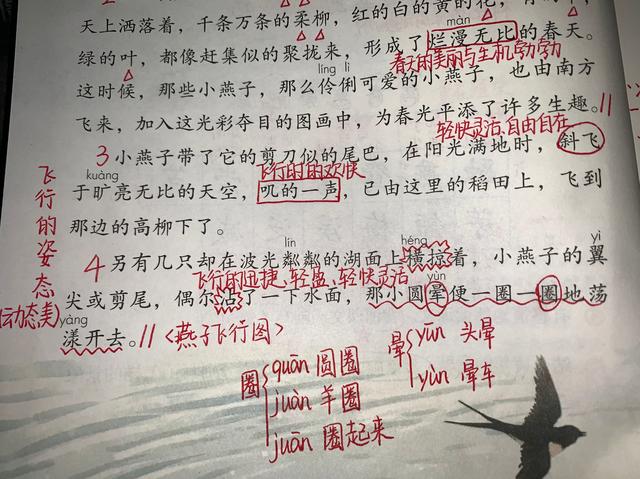 天上洒落着，千条万条的柔柳，红的白的黄的花，
màn
绿的叶，都像赶集似的聚拢来，形成了烂漫无比的春天。
春天的美丽与生机勃勃
líng lì
这时候，那些小燕子，那么伶俐可爱的小燕子，也由南方
飞来，加入这光彩夺目的图画中，为春光平添了许多生趣。//
轻快灵活、自由自在
3 小燕子带了它的剪刀似的尾巴，在阳光满地时，斜飞
kuàng 飞行时的欢快
于旷亮无比的天空，叽的一声，已由这里的稻田上，飞到
那边的高柳下了。
飞行的姿态
(动态美)
lín héng yì
4 另有几只却在波光粼粼的湖面上横掠着，小燕子的翼
飞行的迅捷、轻盈、轻快灵活
yùn
尖或剪尾，偶尔沾了一下水面，那小圆晕便一圈一圈地荡
yàng
漾开去。// <燕子飞行图>
圈 quān 圆圈
juàn 羊圈
juān 圈起来
晕 yūn 头晕
yùn 晕车